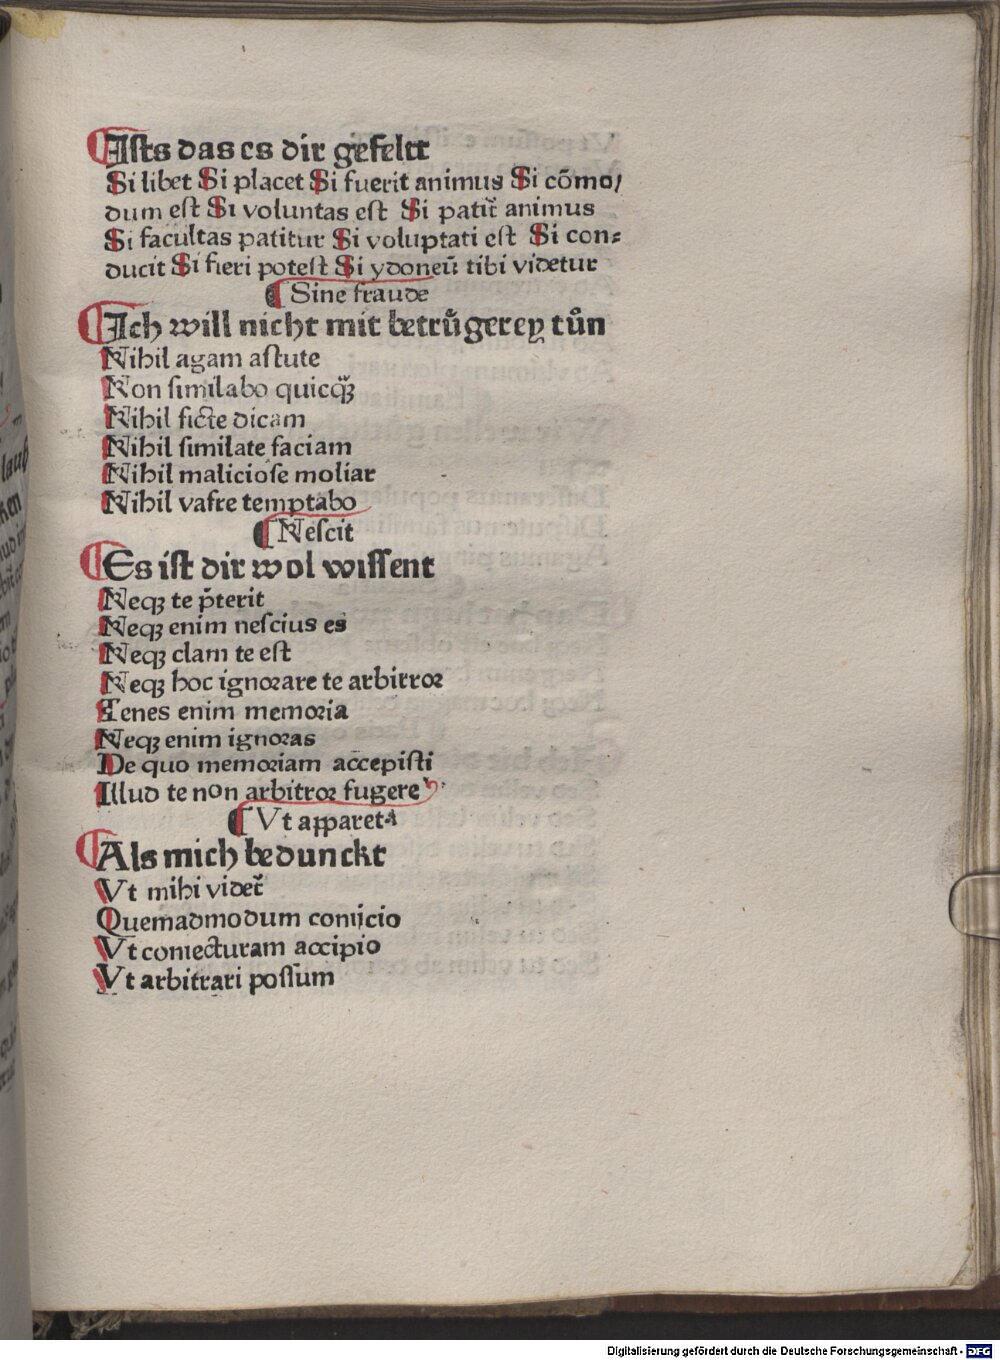 Ists das es dir gefelt
Si libet Si placet Si fuerit animus Si cōmo/
dum est Si voluntas est Si patit᷑ animus
Si facultas patitur Si voluptati est Si con⸗
ducit Si fieri potest Si ydoneū tibi videtur
¶ Sine fraude
¶ Ich will nicht mit betrůgerey tůn
Nihil agam astute
Non similabo quicqꝫ
Nihil ficte dicam
Nihil similate faciam
Nihil maliciose moliar
Nihil vafre temptabo
¶ Nescit
¶ Es ist dir wol wissent
Neqꝫ te p̄terit
Neqꝫ enim nescius es
Neqꝫ clam te est
Neqꝫ hoc ignorare te arbitror
Tenes enim memoria
Neqꝫ enim ignoras
De quo memoriam accepisti
Illud te non arbitror fugere
¶ Vt apparet
¶ Als mich bedunckt
Vt mihi videt᷑
Quemadmodum conijcio
Vt coniecturam accipio
Vt arbitrari possum
Digitalisierung gefördert durch die Deutsche Forschungsgemeinschaft - DFG